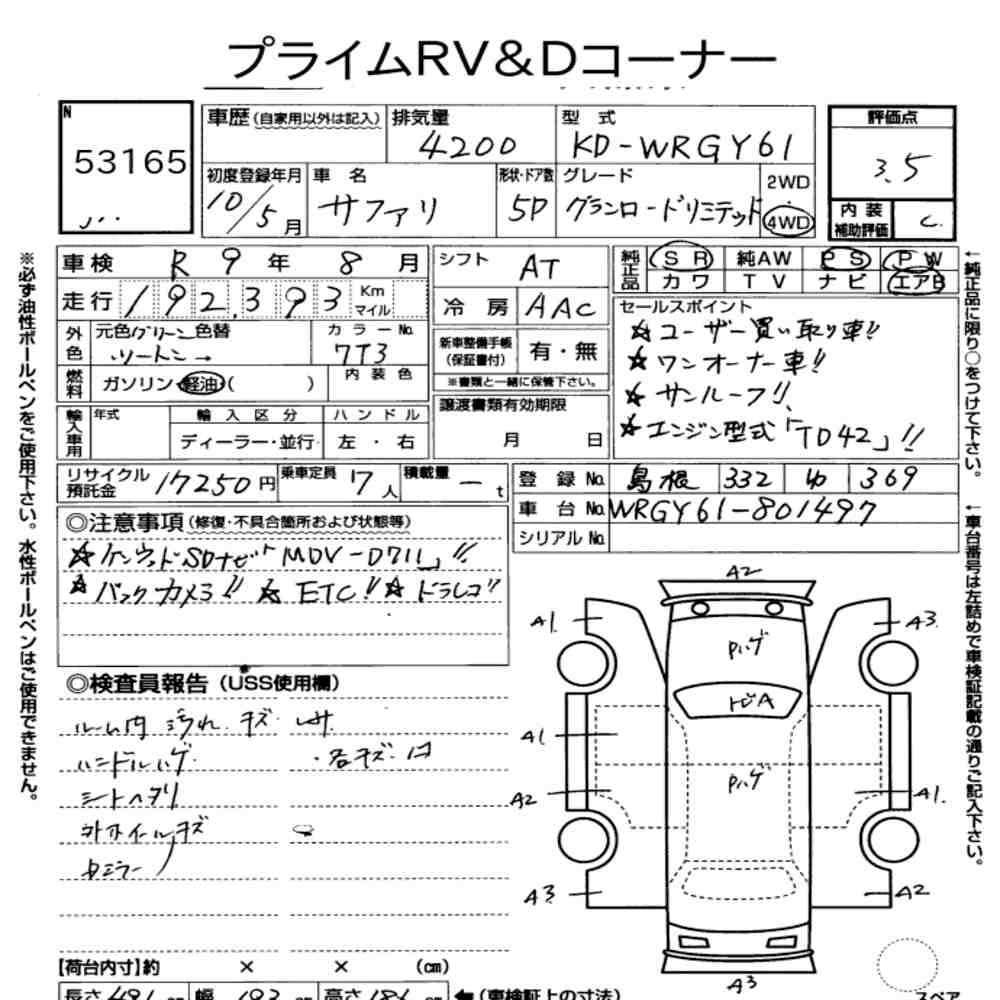 プライムRV&Dコーナー
N
53165
車歴(自家用以外は記入)
排気量
4200
型式
KD-WRGY61
評価点
3.5
内装補助評価
C
初度登録年月
10/5月
車名
サファリ
形状・ドア数
5D
グレード
グランロードリミテッド
2WD
4WD
車検
R9年8月
走行
192,393
Km
マイル
外色
元色グリーン色替
ツートン→
カラーNo.
7T3
燃料
ガソリン・軽油・( )
内装色
輸入車用
年式
輸入区分
ディーラー・並行
ハンドル
左・右
シフト
AT
冷房
AAC
新車整備手帳(保証書付)
有・無
※書類と一緒に保管下さい。
譲渡書類有効期限
月 日
純正品
SR
純AW
PS
PW
カワ
TV
ナビ
エアB
セールスポイント
☆ユーザー買い取り車!!
☆ワンオーナー車!!
☆サンルーフ!!
☆エンジン型式「TD42」!!
リサイクル預託金
17250円
乗車定員
7人
積載量
ー t
登録No.
島根 332 ゆ 369
車台No.
WRGY61-801497
シリアルNo.
◎注意事項(修復・不具合箇所および状態等)
☆ケンウッドSDナビ「MDV-D711」!!
☆バックカメラ!! ☆ETC!! ☆ドラレコ!!
◎検査員報告(USS使用欄)
ルーム内 汚れ キズ
ハンドルハゲ
・各キズ・凹
シートヘタリ
外ホイールキズ
※必ず油性ボールペンをご使用下さい。水性ボールペンはご使用できません。
←純正品に限り○をつけて下さい。
←車台番号は左詰めで車検証記載の通りご記入下さい。
A2
A1
A3
Pハゲ
トビA
A1
Pハゲ
A2
A1
A3
A2
A3
スペア
【荷台内寸】約 × × (cm)
長さ
幅
193
高さ
186
cm
←(車検証上の寸法)